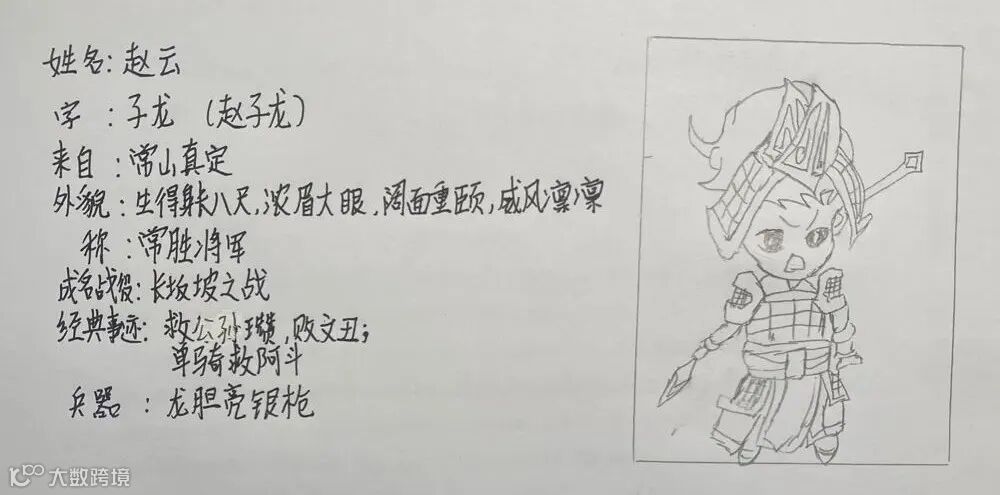 姓名：赵云
字：子龙（赵子龙）
来自：常山真定
外貌：生得身长八尺，浓眉大眼，阔面重颐，威风凛凛
称：常胜将军
成名战役：长坂坡之战
经典事迹：救公孙瓒，败文丑；
单骑救阿斗
兵器：龙胆亮银枪
100 大数跨境